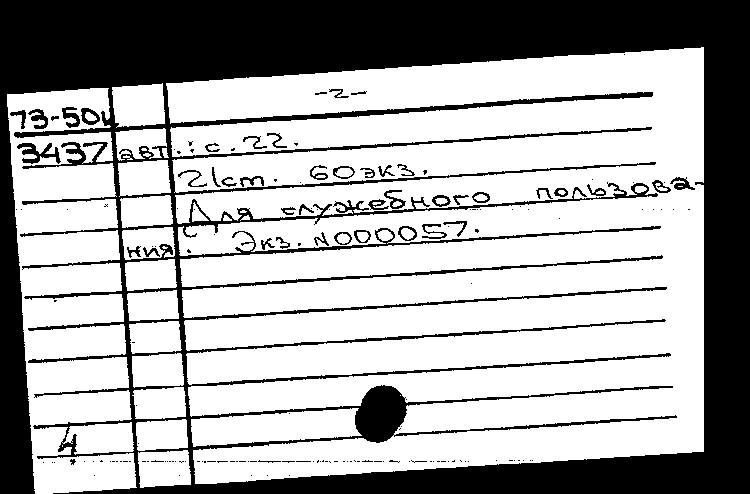 -2-
73-50и
3437 авт.: с. 22.
21cm. 60экз.
Для служебного пользова-
ния. Экз. N000057.
4